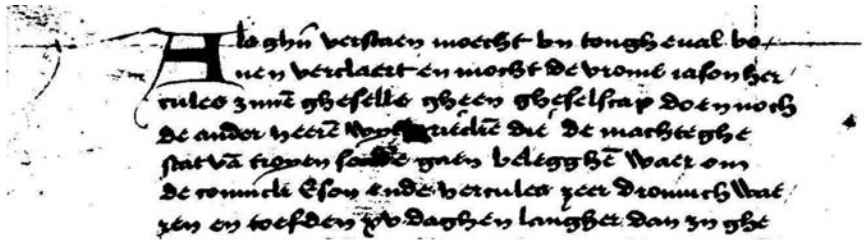 Als ghij verstaen moecht bij tonghеval bo-
uen verclaert en mocht de vrome iason her
cules zijnē gheselle gheen gheselscap doen noch
de ander heerē wyt grieckē die de machteghe
stat vā troyen soude gaen belegghē waer om
de conincк Eson ende hercules zeer drouuich wae
ren en toefden xv daghen langher dan zy ghe